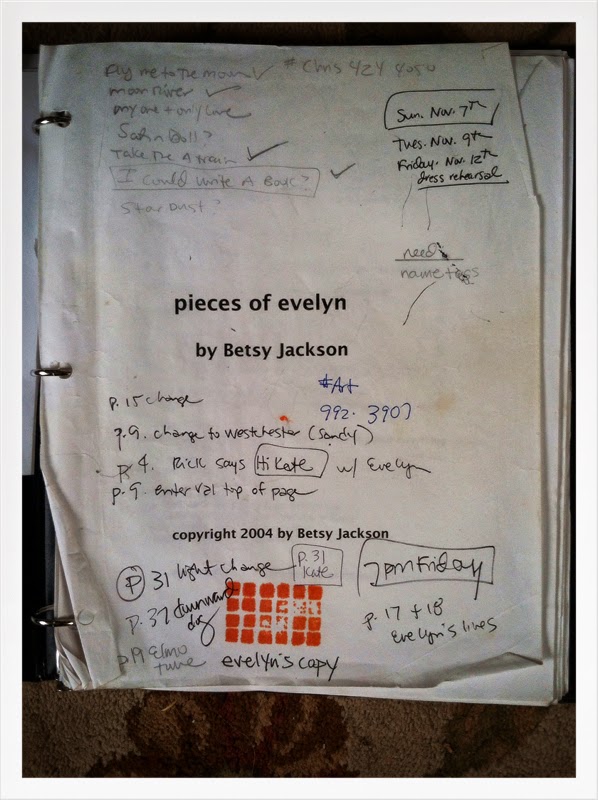 Fly me to the moon
# Chris 424 4050
moon River
my one + only Love
Satin Doll?
Take the A train
I Could Write A Book?
Star Dust?
Sun. Nov. 7th
Tues. Nov. 9th
Friday. Nov. 12th
dress rehearsal
need
name tags
pieces of evelyn
by Betsy Jackson
#Art
992. 3907
p. 15 change
p. 9. change to Westchester (Sandy)
p. 4. Rick says Hi Kate w/ Evelyn
p. 9 enter val top of page
copyright 2004 by Betsy Jackson
P 31 light change
p. 31
Kate
7pm Friday
p. 37 downward
dog
p. 17 + 18
Evelyn's lives
p 19 elmo
tune
evelyn's copy